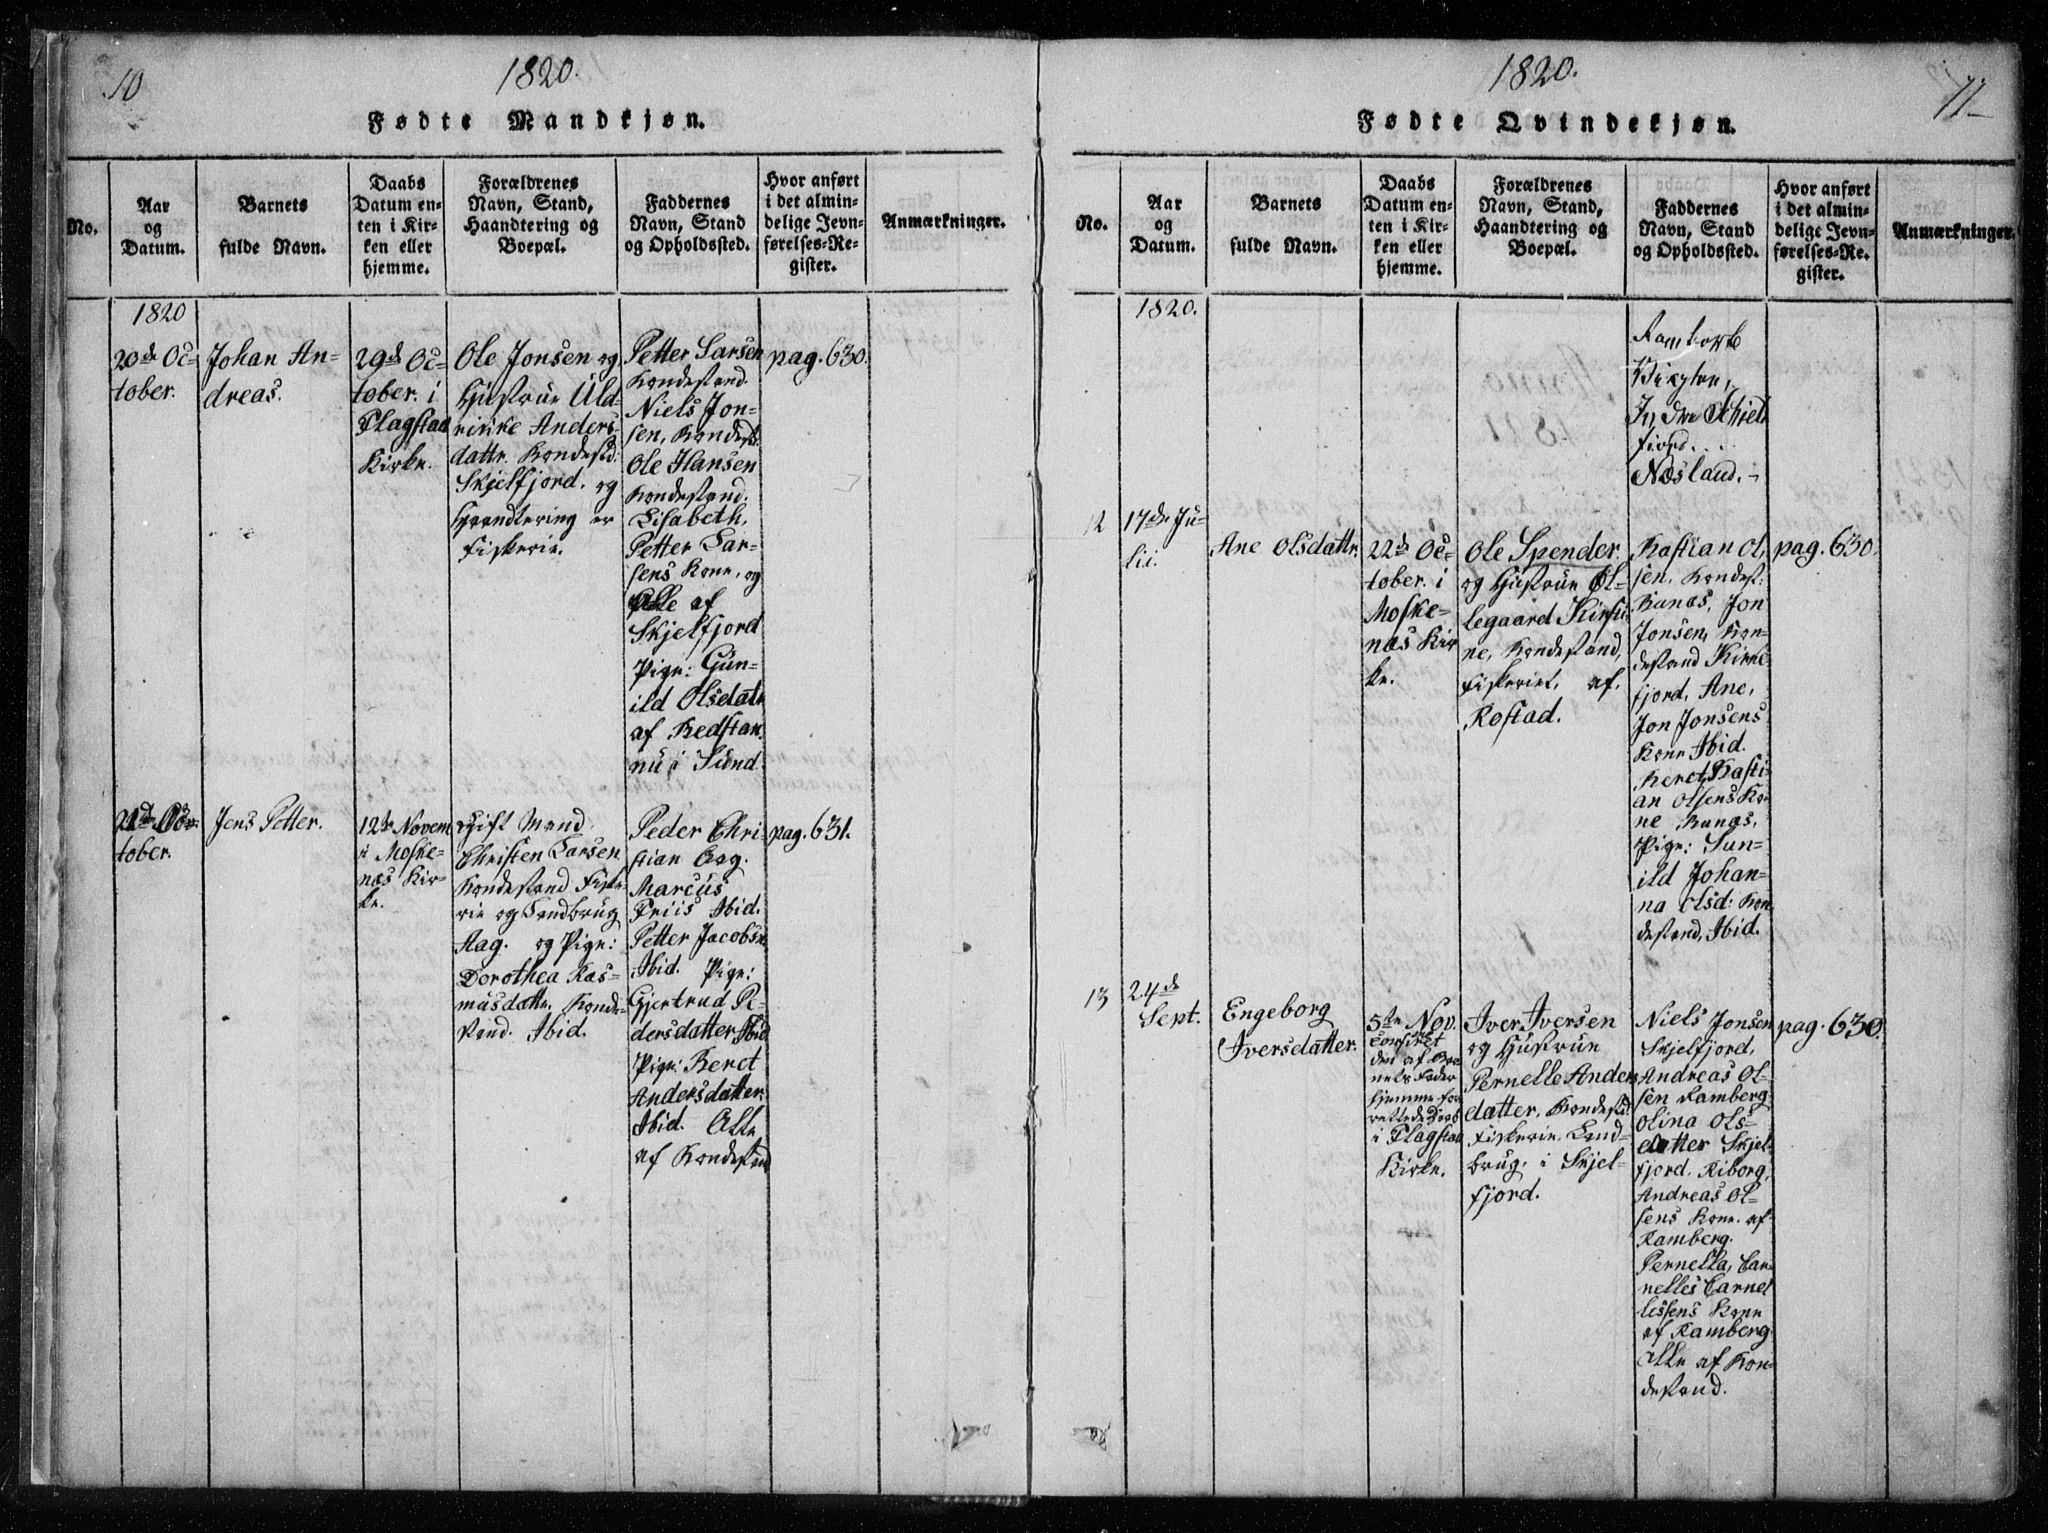 10
1820.
Fødte Mandkjøn.
No.
Aar
og
Datum.
Barnets
fulde Navn.
Daabs
Datum en-
ten i Kir-
ken eller
hjemme.
Forældrenes
Navn, Stand,
Haandtering og
Boepæl.
Faddernes
Navn, Stand
og Opholdssted.
Hvor anført
i det almin-
delige Jevn-
førelses-Re-
gister.
Anmærkninger.
1820
20de Oc-
tober.
Johan An-
dreas.
29de Oc-
tober. i
Flagstad
Kirke.
Ole Jonsen og
Hustrue Uld-
rikke Anders-
dattr. Bondestd:
Skjelfjord. og
Haandtering er
Fiskerie.
Petter Larsen
Bondestand.
Niels Jon-
sen, Bondestd.
Ole Hansen
Bondestand.
Lisabeth,
Petter Lar-
sens Kone, og
Alle af
Skjelfjord
Pige: Gun-
ild Olsdatr
af
nu i Sund.
pag. 630.
tober.
Jens Petter.
12te Novem
i Moske-
næs Kir-
ke.
gift Mand
Christen Larsen
Bondestand Fiske-
rie og Landbrug
Aag. og Pige:
Dorothea Ras-
musdattr. Bonde-
stand. Ibid.
Peder Chri-
stian Aag.
Marcus
Friis Ibid.
Petter Jacobsn
Ibid. Pige:
Gjertrud Pe-
dersdatter Ibid
Pige: Beret
Andersdatter.
Ibid. Alle
af Bondestand
pag. 631.
1820.
11
Fødte Qvindekjøn.
No.
Aar
og
Datum.
Barnets
fulde Navn.
Daabs
Datum en-
ten i Kir-
ken eller
hjemme.
Forældrenes
Navn, Stand,
Haandtering og
Boepæl.
Faddernes
Navn, Stand
og Opholdssted.
Hvor anført
i det almin-
delige Jevn-
førelses-Re-
gister.
Anmærkninger.
1820.
Indre Schiel
fjord.
Næsland.
12
17de Ju-
lii.
Ane Olsdattr.
22de Oc-
tober. i
Moske-
næs Kir
ke.
Ole Spender.
og Hustrue Ol-
legaard Kirsti-
ne, Bondestand,
Fiskeriet, af.
Rostad.
Bastian Ol,
sen, Bondest:
Bunæs, Jon
Jonsen, Bon-
destand Kirke
fjord, Ane,
Jon Jonsens
Kone Ibid.
Beret, Basti-
an Olsens Ko-
ne Bunæs,
Pige: Gun-
ild Johan-
na Olsd: Bon
destand, Ibid.
pag. 630.
13
24de
Sept.
Engeborg
Iversdatter.
5te Nov.
i Flagstad
Kirke.
Iver Iversen
og Hustrue
Pernelle Anders
datter, Bondestd
Fiskerie. Land-
brug. i Skjel-
fjord.
Niels Jonsen
Skjelfjord,
Andreas Ol-
sen Ramberg
Olina Ols-
datter Skjel-
fjord. Riborg,
Andreas Ol-
sens Kone. af
Ramberg.
Pernella, Car-
nelles Carnel
lessens Kone
af Ramberg.
Alle af Bon-
destand.
pag. 630.